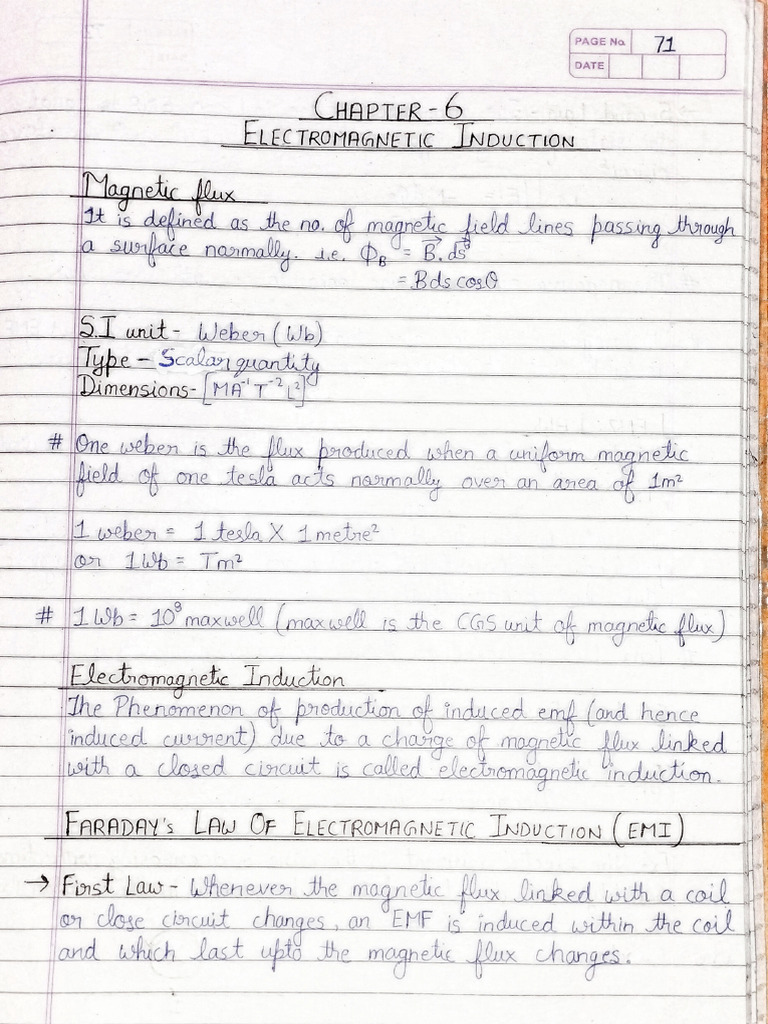 PAGE No. 71
DATE
CHAPTER-6
ELECTROMAGNETIC INDUCTION
Magnetic flux
It is defined as the no. of magnetic field lines passing through
a surface normally. i.e. Φ_B = B⃗.ds⃗
= Bds cosθ
S.I unit - Weber (Wb)
Type - Scalar quantity
Dimensions - [MA⁻¹T⁻²L²]
# One weber is the flux produced when a uniform magnetic
field of one tesla acts normally over an area of 1m²
1 weber = 1 tesla X 1 metre²
or 1Wb = Tm²
# 1 Wb = 10⁸ maxwell (maxwell is the CGS unit of magnetic flux)
Electromagnetic Induction
The Phenomenon of production of induced emf (and hence
induced current) due to a change of magnetic flux linked
with a closed circuit is called electromagnetic induction.
FARADAY's LAW OF ELECTROMAGNETIC INDUCTION (EMI)
→ First Law - Whenever the magnetic flux linked with a coil
or close circuit changes, an EMF is induced within the coil
and which last upto the magnetic flux changes.